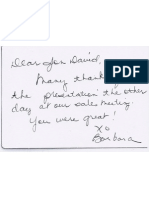 Dear Jon David,
Many thanks
the presentation the other
day at our sales meeting.
You were great!
XO
Barbara